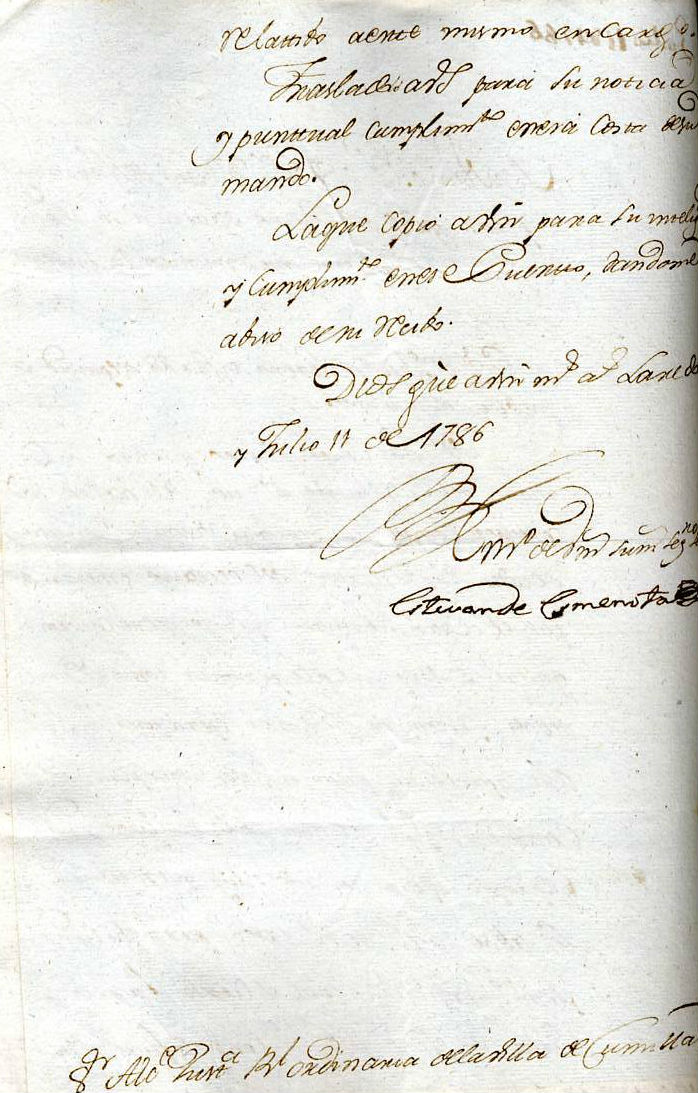 relatibo a este mismo encargo.
Trasladolo a Vd para su noticia
y puntual cumplimto en esa Costa de su
mando.
La que copio a Vm para su intelig
y cumplimto en ese Puerto, dandome
abiso de su Recibo.
Dios gue a Vm ms as Laredo
y Julio 11 de 1786
de Vmd su mr segno
Estevan de Esmenota
Sr Alce Justa Rl ordinaria de la Villa de